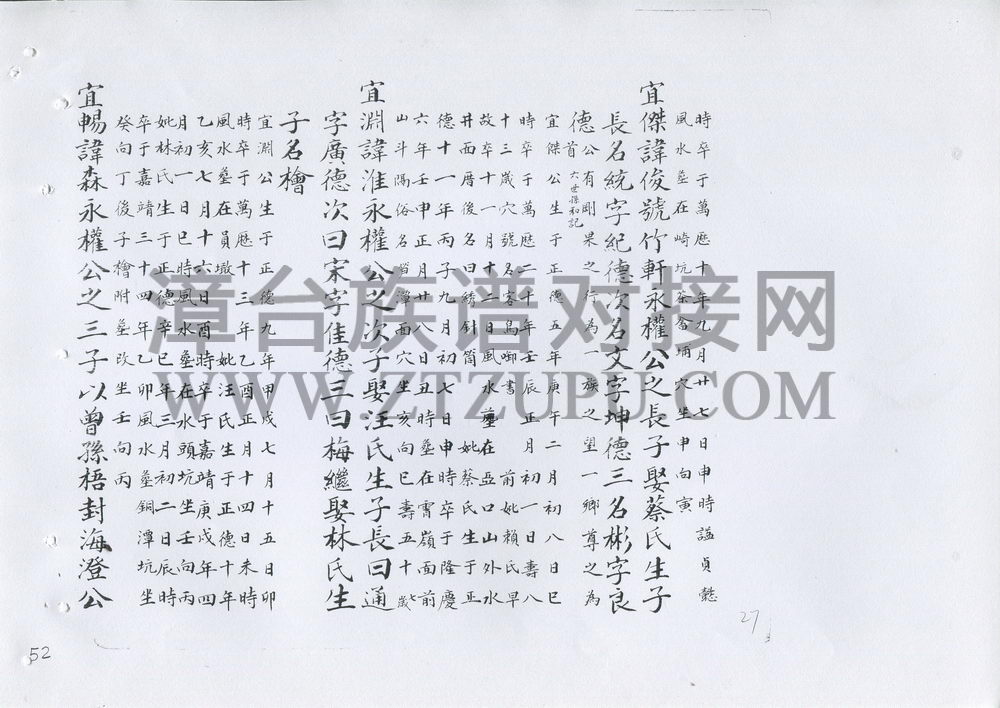 時卒于萬曆十年九月廿七日申時謚貞懿
風水塋在崎坑茶畬埔穴坐申向寅
宜傑諱俊號竹軒永權公之長子娶蔡氏生子
長名統字紀德次名文字坤德三名彬字良
德公有剛果之行為一族之望一鄉尊之為
首六世孫和記
宜傑公生于正德五年庚午二月初八日巳
時卒于萬曆二十年壬辰正月初一日壽八
十三歲穴號名客鳥啣書前妣賴氏早
故卒十一月十二日風水塋在亞口山外水
井面曆後名曰綉針筒妣蔡氏生于正
德十一年丙子九月初七日申時卒于隆慶
六年壬申正月廿八日丑時塋在霄嶺面前
山斗隔俗名潭面穴坐亥向巳壽五十七歲
宜淵諱淮永權公之次子娶汪氏生子長曰通
字廣德次曰宋字佳德三曰梅繼娶林氏生
子名檜
宜淵公生于正德九年甲戌七月十五日卯
時卒于萬曆十三年乙酉正月十四日未時
風水塋在員墩妣汪氏生于正德十年
乙亥七月十六日酉時卒于嘉靖庚戌年四
月初一日巳時風水塋在水頭坑坐壬向丙
妣林氏生于正德辛巳年三月初二日辰時
卒于嘉靖三十四年乙卯風水塋銅潭坑坐
癸向丁後子檜附塋改坐壬向丙
宜暢諱森永權公之三子以曾孫梧封海澄公
27
52
漳台族谱对接网
WWW.ZTZUPU.COM